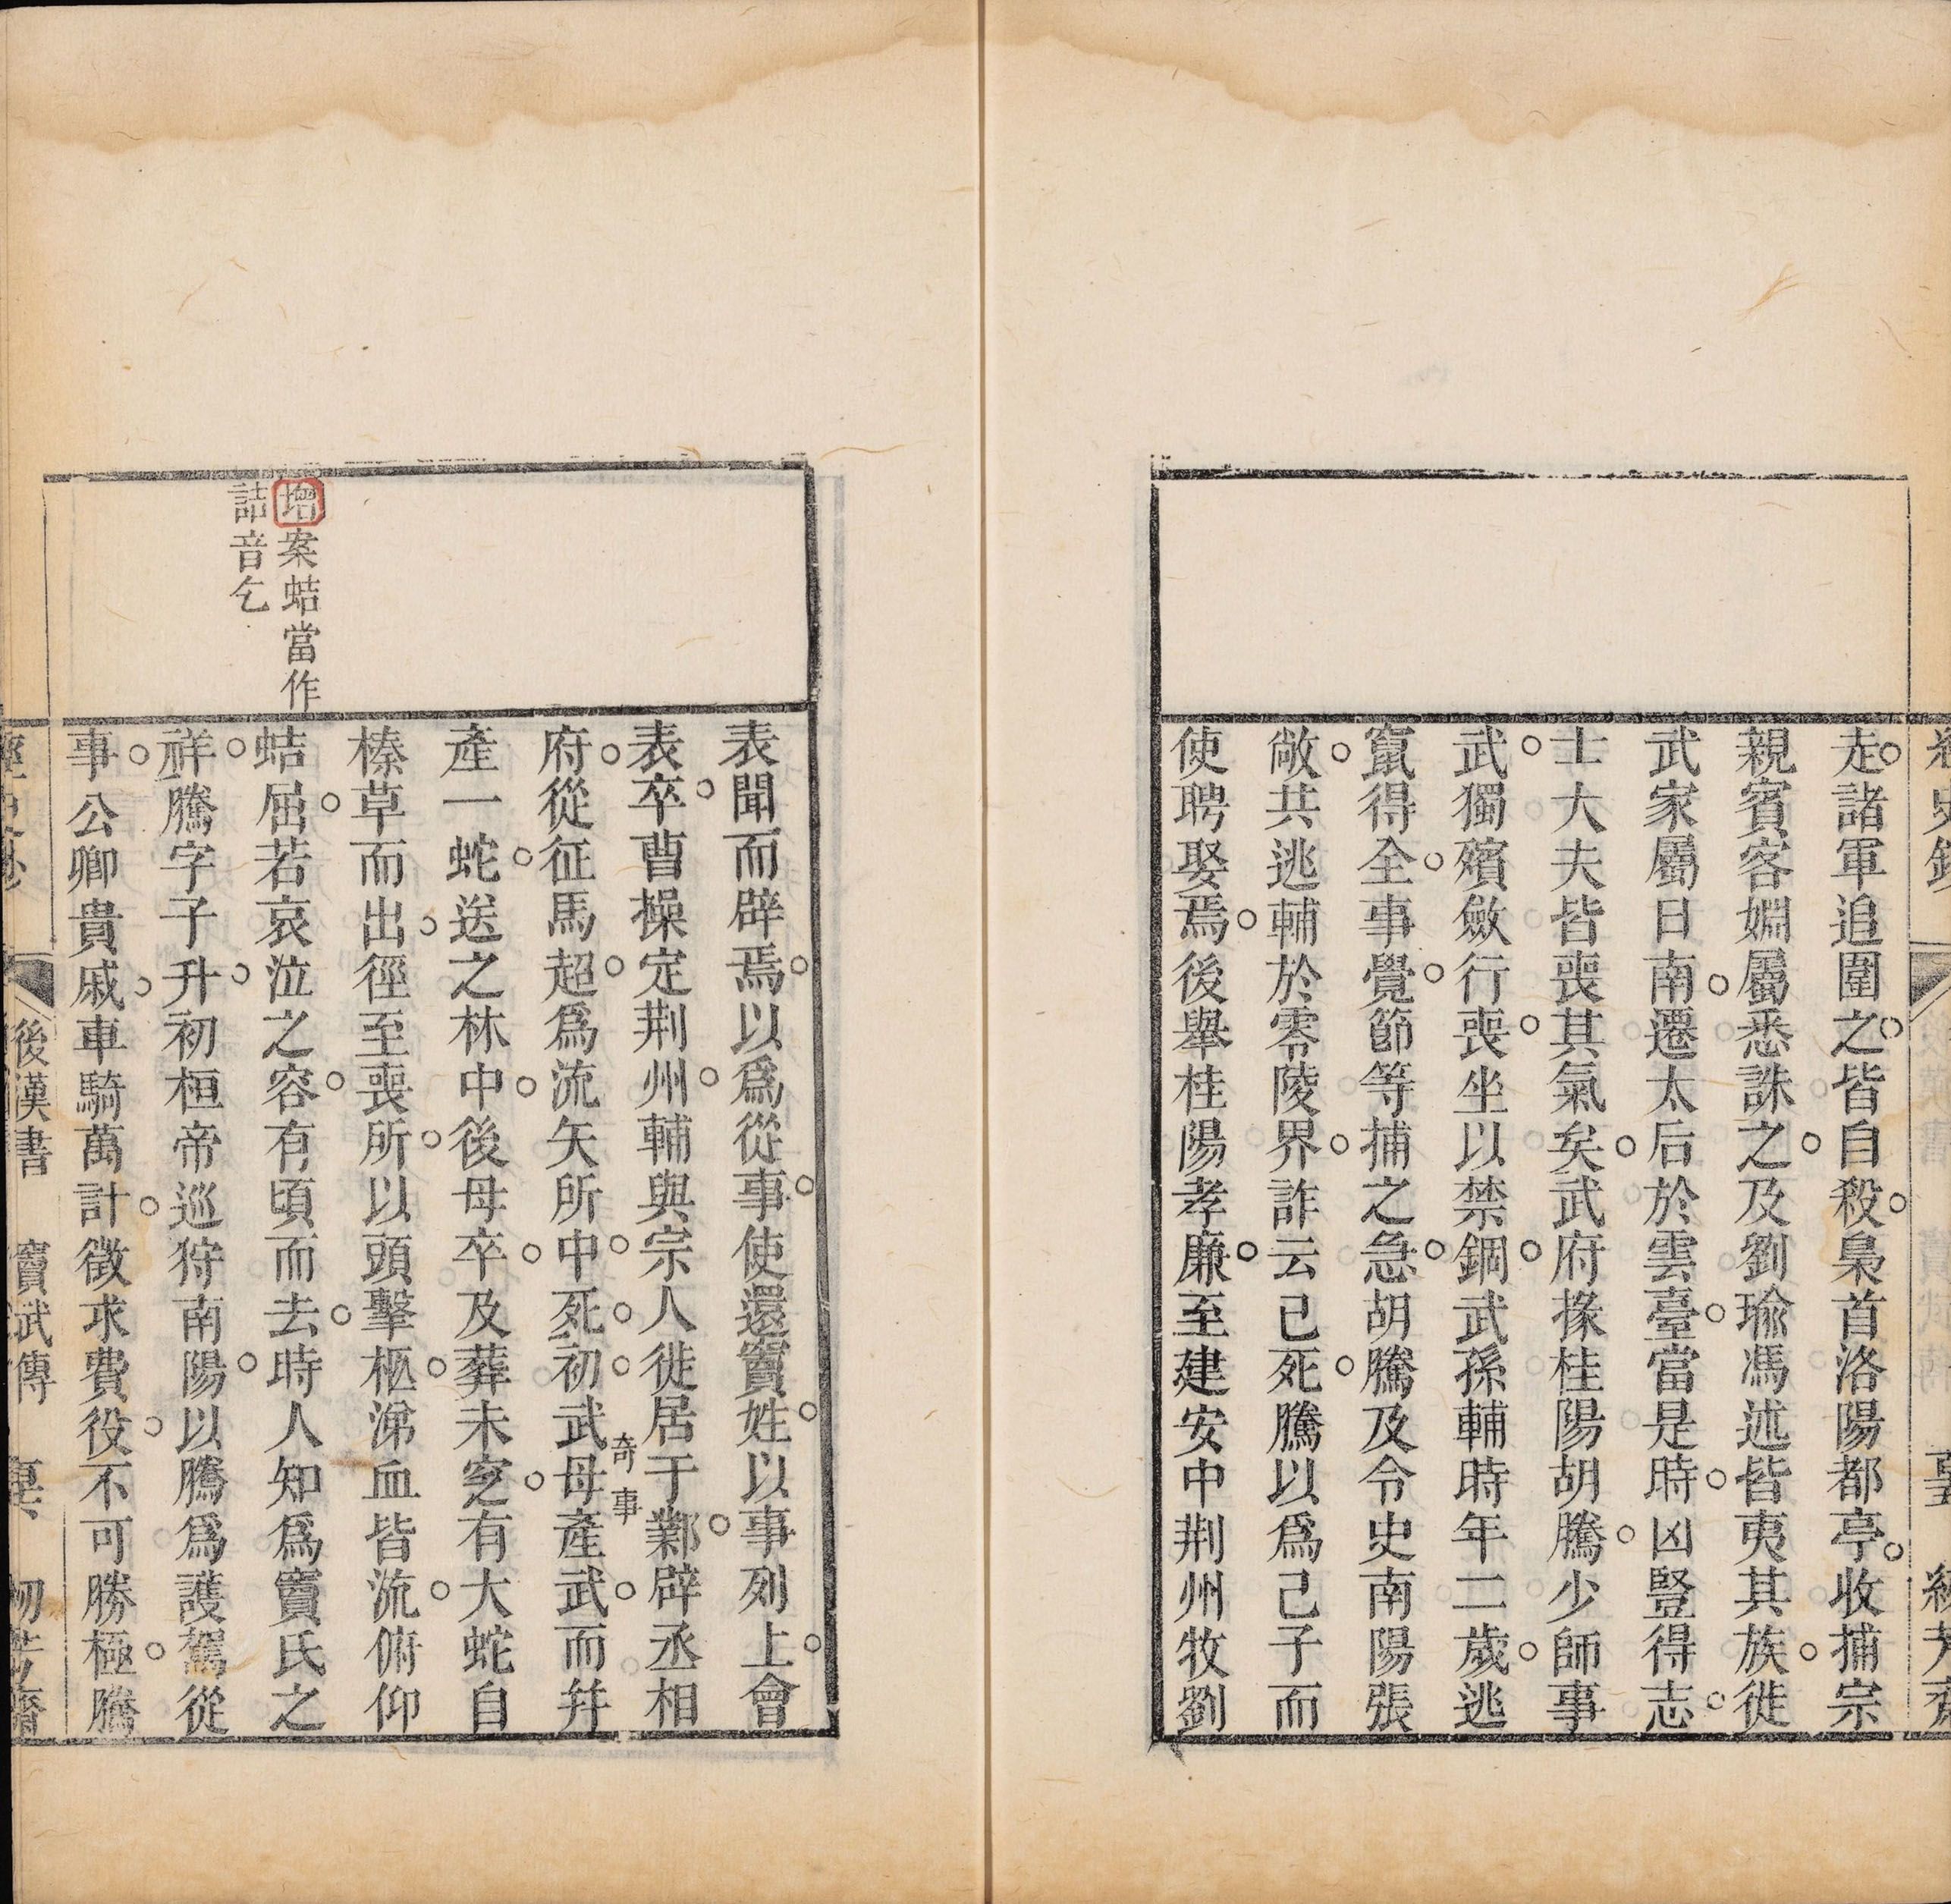 走諸軍追圍之皆自殺梟首洛陽都亭收捕宗
親賓客婣屬悉誅之及劉瑜馮述皆夷其族徙
武家屬日南遷太后於雲臺當是時凶豎得志
士大夫皆喪其氣矣武府掾桂陽胡騰少師事
武獨殯斂行喪坐以禁錮武孫輔時年二歲逃
竄得全事覺節等捕之急胡騰及令史南陽張
敞共逃輔於零陵界詐云已死騰以爲己子而
使聘娶焉後舉桂陽孝廉至建安中荆州牧劉
表聞而辟焉以爲從事使還竇姓以事列上會
表卒曹操定荆州輔與宗人徙居于鄴辟丞相
府從征馬超爲流矢所中死初武母產武而并
奇事
產一蛇送之林中後母卒及葬未窆有大蛇自
榛草而出徑至喪所以頭擊柩涕血皆流俯仰
增案蛣當作
詰音乞
蛣屈若哀泣之容有頃而去時人知爲竇氏之
祥騰字子升初桓帝巡狩南陽以騰爲護駕從
事公卿貴戚車騎萬計徵求費役不可勝極騰
後漢書 竇武傳